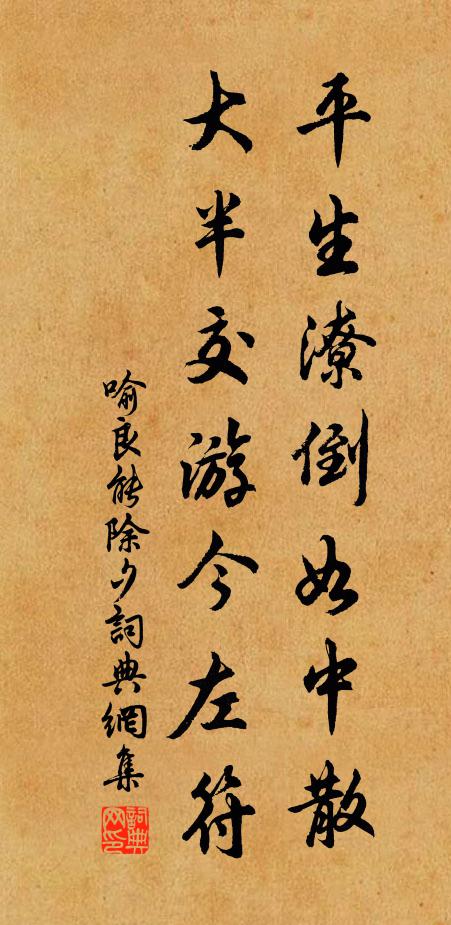 平生潦倒如中散
大半交游今左符
喻良能除夕詞典網集
詞典网印